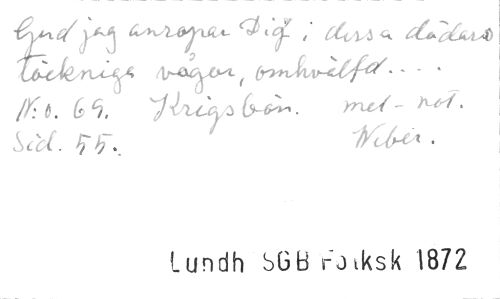 Gud jag anropar Dig i dessa dödars
töckniga vågor, omhvälfd....
No. 69. Krigsbön. mel-not.
Sid. 55. Weber.
Lundh SGB Folksk 1872